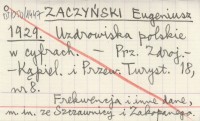 ZACZYŃSKI Eugeniusz
1929. Uzdrowiska polskie
w cyfrach. - Prz. Zdroj.-
-Kąpiel. i Przew. Turyst. 18,
nr 8.
Frekwencja i inne dane,
m. in. ze Szczawnicy i Zakopanego.